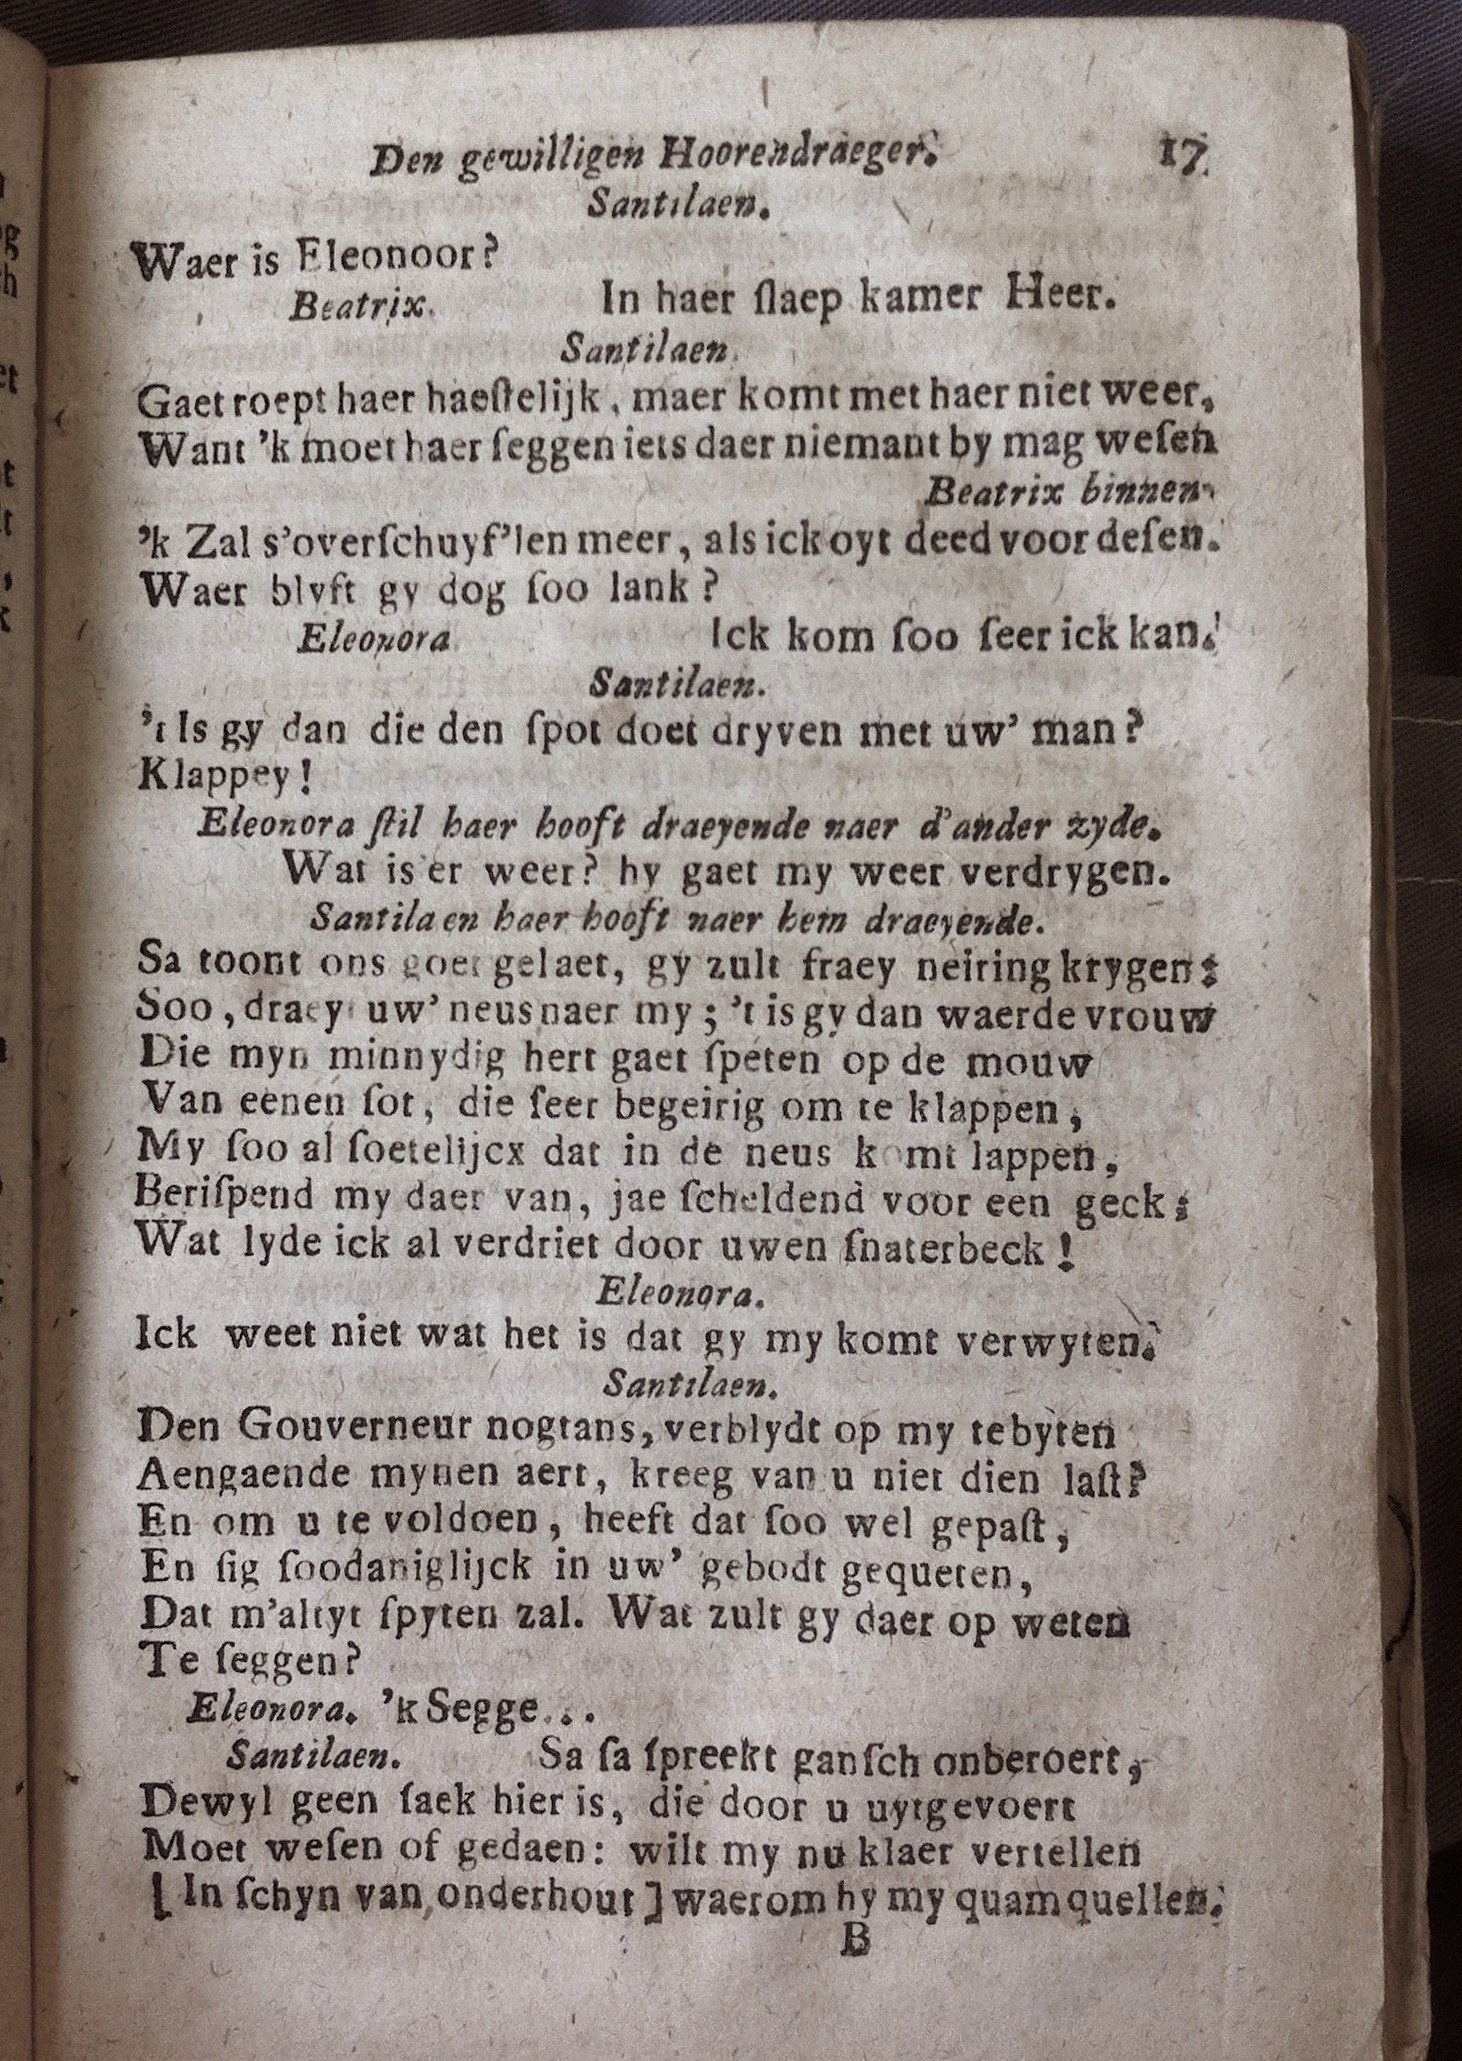 Den gewilligen Hoorendraeger. 17
Santilaen.
Waer is Eleonoor?
Beatrix. In haer ſlaep kamer Heer.
Santilaen.
Gaet roept haer haeſtelijk, maer komt met haer niet weer,
Want 'k moet haer ſeggen iets daer niemant by mag weſen
Beatrix binnen.
'k Zal s'overſchuyf'len meer, als ick oyt deed voor deſen.
Waer blyft gy dog ſoo lank?
Eleonora Ick kom ſoo ſeer ick kan.
Santilaen.
't Is gy dan die den ſpot doet dryven met uw' man?
Klappey!
Eleonora ſtil haer hooft draeyende naer d'ander zyde.
Wat is'er weer? hy gaet my weer verdrygen.
Santilaen haer hooft naer hem draeyende.
Sa toont ons goet gelaet, gy zult fraey neiring krygen:
Soo, draey uw' neus naer my; 't is gy dan waerde vrouw
Die myn minnydig hert gaet ſpeten op de mouw
Van eenen ſot, die ſeer begeirig om te klappen,
My ſoo al ſoetelijcx dat in de neus komt lappen,
Beriſpend my daer van, jae ſcheldend voor een geck:
Wat lyde ick al verdriet door uwen ſnaterbeck!
Eleonora.
Ick weet niet wat het is dat gy my komt verwyten.
Santilaen.
Den Gouverneur nogtans, verblydt op my te byten
Aengaende mynen aert, kreeg van u niet dien laſt?
En om u te voldoen, heeft dat ſoo wel gepaſt,
En ſig ſoodaniglijck in uw' gebodt gequeten,
Dat m'altyt ſpyten zal. Wat zult gy daer op weten
Te ſeggen?
Eleonora. 'k Segge...
Santilaen. Sa ſa ſpreekt ganſch onberoert,
Dewyl geen ſaek hier is, die door u uytgevoert
Moet weſen of gedaen: wilt my nu klaer vertellen
[In ſchyn van onderhout] waerom hy my quam quellen.
B